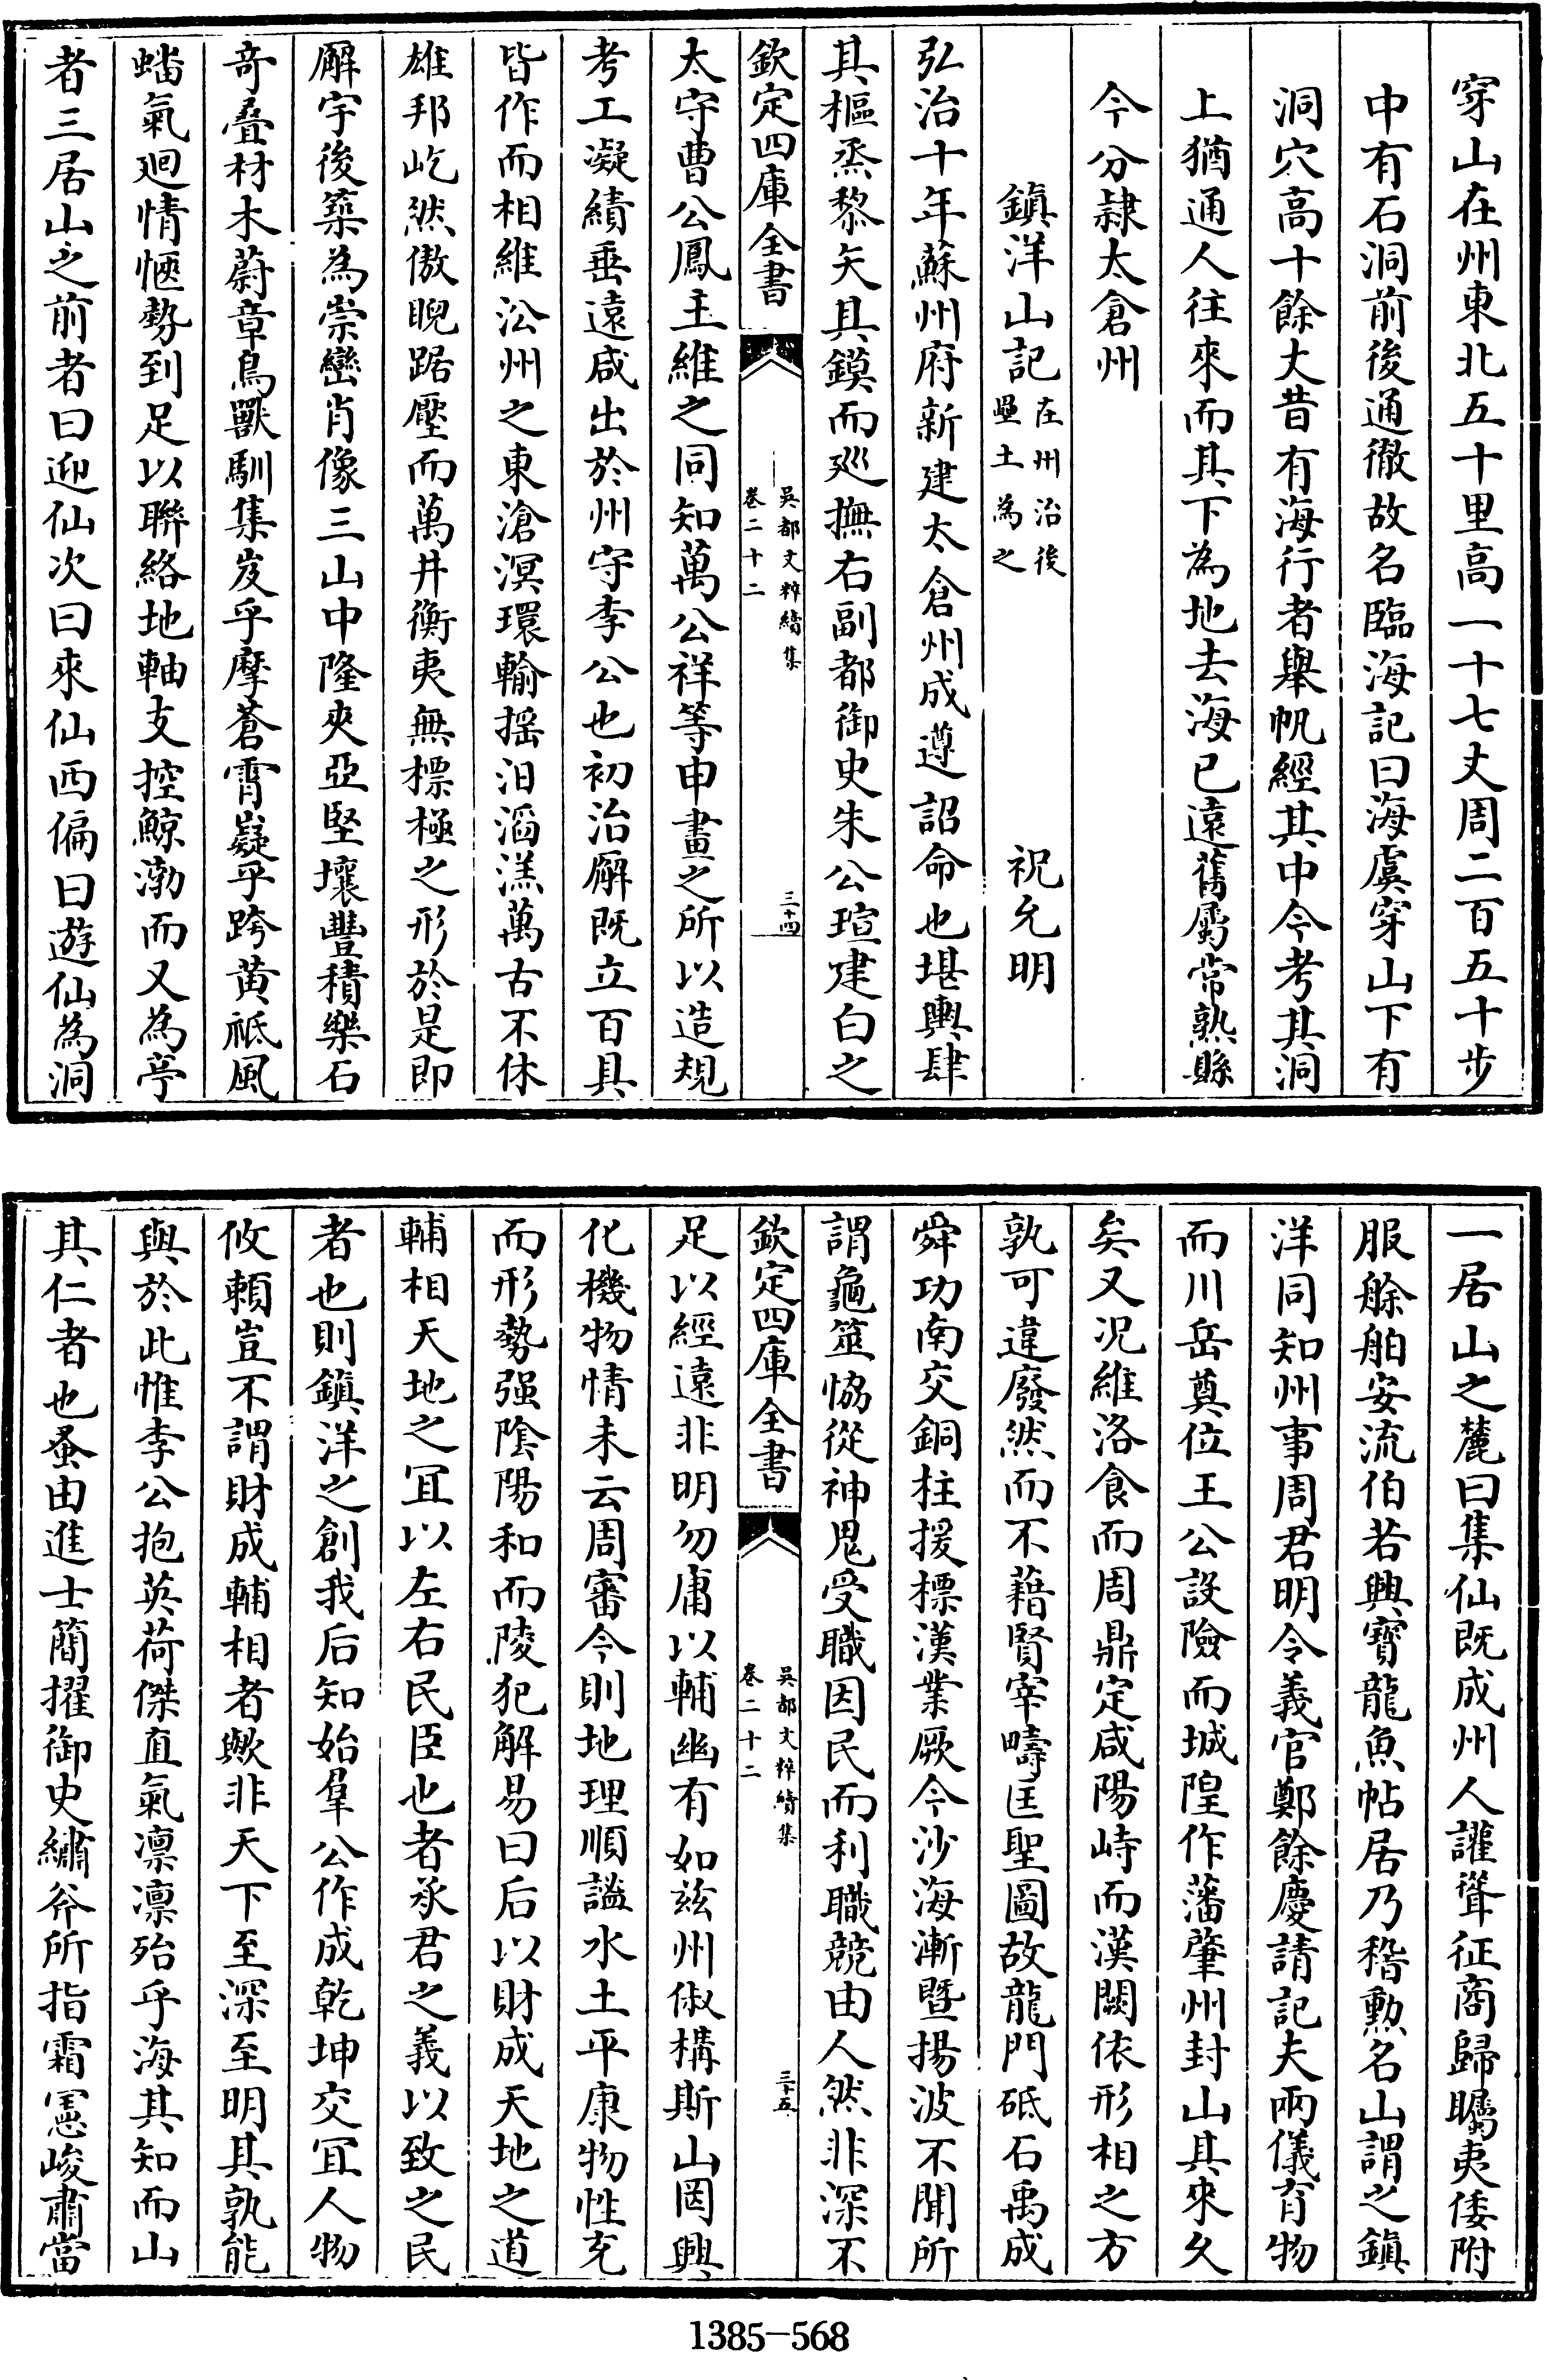 穿山在州東北五十里高一十七丈周二百五十步
中有石洞前後通徹故名臨海記曰海虞穿山下有
洞穴高十餘丈昔有海行者舉帆經其中今考其洞
上猶通人往來而其下為地去海已遠舊屬常熟縣
今分隷太倉州
鎮洋山記在州治後壘土為之 祝允明
弘治十年蘇州府新建太倉州成遵詔命也堪輿肆
其樞烝黎矢其鏌而廵撫右副都御史朱公瑄建白之
欽定四庫全書 吳都文粹續集 卷二十二 三十四
太守曹公鳳主維之同知萬公祥等申畫之所以造規
考工凝績垂遠咸出於州守李公也初治廨既立百具
皆作而相維㳂州之東滄溟環輸揺汨滔漾萬古不休
雄邦屹然傲睨踞壓而萬井衡夷無標極之形於是即
廨宇後築為崇巒肖像三山中隆夾亞堅壤豐積樂石
竒疊材木蔚章鳥獸馴集岌乎摩蒼霄嶷乎跨黄祗風
蟠氣廻情愜勢到足以聯絡地軸支控鯨渤而又為亭
者三居山之前者曰迎仙次曰來仙西偏曰遊仙為洞
一居山之麓曰集仙既成州人讙聳征商歸矚夷倭附
服艅舶安流伯若興寳龍魚帖居乃稽勲名山謂之鎮
洋同知州事周君明令義官鄭餘慶請記夫兩儀育物
而川岳奠位王公設險而城隍作藩肇州封山其來久
矣又况維洛食而周鼎定咸陽峙而漢闕依形相之方
孰可違廢然而不藉賢宰疇匡聖圖故龍門砥石禹成
舜功南交銅柱援標漢業厥今沙海漸暨揚波不聞所
謂龜筮恊從神鬼受職因民而利職競由人然非深不
欽定四庫全書 吳都文粹續集 卷二十二 三十五
足以經遠非明勿庸以輔幽有如兹州俶構斯山罔興
化機物情未云周審今則地理順謐水土平康物性充
而形勢强隂陽和而陵犯解易曰后以財成天地之道
輔相天地之冝以左右民臣也者承君之義以致之民
者也則鎮洋之創我后知始羣公作成乾坤交冝人物
攸頼豈不謂財成輔相者歟非天下至深至明其孰能
與於此惟李公抱英荷傑直氣凛凛殆乎海其知而山
其仁者也蚤由進士簡擢御史繡斧所指霜憲峻肅當
1385-568